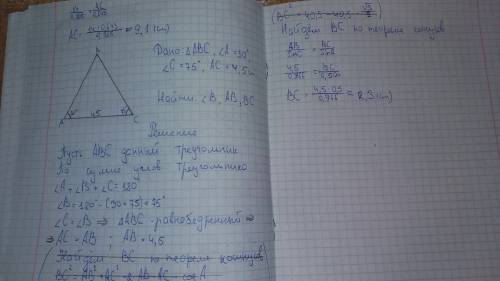 AC = = 9,1 (см)
B
A 45 C
Дано: △ABC, ∠A = 30°
∠C = 75°, AC = 4,5 см
Найти: ∠B, AB, BC
Решение
Пусть ABC данный треугольник
По сумме углов треугольника
∠A + ∠B + ∠C = 180°
∠B = 180° - (30 + 75) = 75°
∠C = ∠B ⇒ △ABC - равнобедренный ⇒
⇒ AC = AB ; AB = 4,5
(Найдем BC по теореме косинусов
BC² = AB² + AC² - 2 AB · AC cos A
(BC² = 40,5 - 40,5 · √3/2)
Найдем BC по теореме синусов
AB/sin C = BC/sin A
4,5/0,966 = BC/0,5
BC = 4,5 · 0,5/0,966 = 2,3 (см)